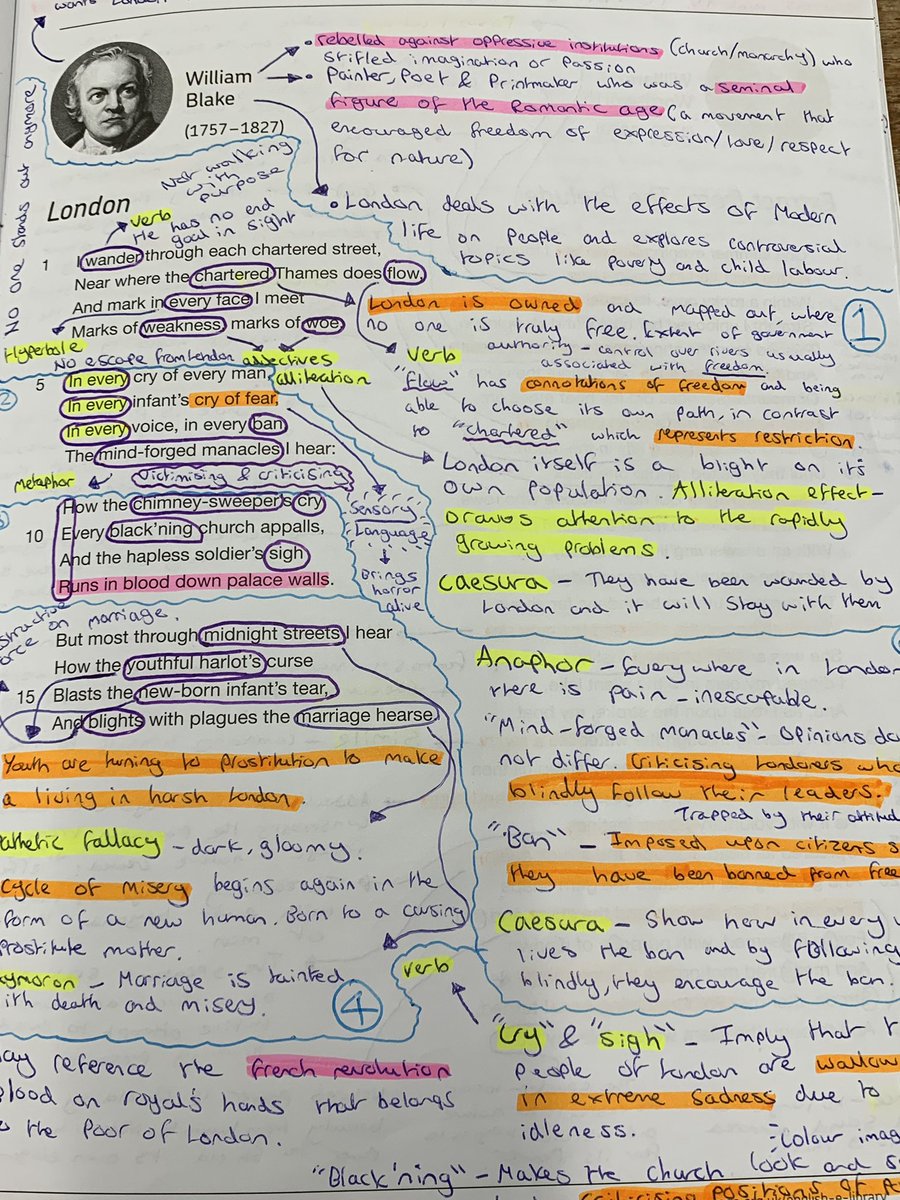 wants London
rebelled against oppressive institutions (church/monarchy) who
stifled imagination or Passion
William
Blake
(1757–1827)
Painter, Poet & Printmaker who was a seminal
figure of the Romantic age (a movement that
encouraged freedom of expression/love/respect
for nature)
London deals with the effects of Modern
life on People and explores controversial
topics like Poverty and child labour.
NO one stands out anymore
London
Not walking
with
purpose
verb
He has no end
goal in sight
1 I wander through each chartered street,
Near where the chartered Thames does flow,
And mark in every face I meet
Marks of weakness, marks of woe.
Hyperbole
No escape from London
adjectives
alliteration
2
5 In every cry of every man,
In every infant's cry of fear,
In every voice, in every ban
The mind-forged manacles I hear:
metaphor
Victimising & criticising
How the chimney-sweeper's cry
10 Every black'ning church appalls,
And the hapless soldier's sigh
Runs in blood down palace walls.
Sensory
Language
Brings
horror
alive
on marriage.
But most through midnight streets I hear
How the youthful harlot's curse
15 Blasts the new-born infant's tear,
And blights with plagues the marriage hearse.
1
London is owned and mapped out, where
no one is truly free. Extent of government
authority – control over rivers usually
associated with freedom.
verb
"flow" has connotations of freedom and being
able to choose its own path, in contrast
to "chartered" which represents restriction.
London itself is a blight on it's
own population. Alliteration effect –
Draws attention to the rapidly
growing problems.
Caesura – They have been wounded by
London and it will stay with them
Anaphor – Everywhere in London
there is pain – inescapable.
"Mind-forged manacles" – Opinions do
not differ. Criticising Londoners who
blindly follow their leaders.
Trapped by their
"Ban" – Imposed upon citizens
they have been banned from
Caesura – Show how in every
lives the ban and by following
blindly, they encourage the ban.
Youth are turning to prostitution to make
a living in harsh London.
fallacy – dark, gloomy.
Cycle of misery begins again in the
form of a new human. Born to a cursing
Prostitute mother.
– Marriage is tainted
with death and misery.
4
verb
"Cry" & "sigh" – Imply that
people of London are
in extreme sadness due to
idleness.
reference the french revolution
Blood on royal's hands that belongs
to the Poor of London.
Colour
"Black'ning" – Makes the church look and
criticising positions of